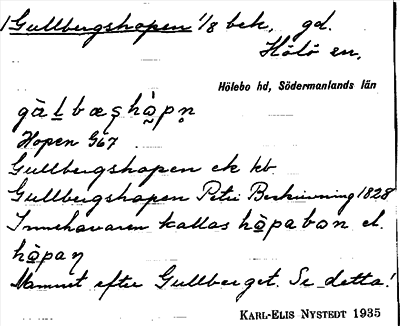 1 Gullbergshopen 1/8 bek, gd.
Hölö sn,
Hölebo hd, Södermanlands län
gɑ̀ḷbæʂhɑ̀̀pn̥
Hopen G67
Gullbergshopen ek kb
Gullbergshopen Petri Beskrivning 1828
Innehavaren kallas hɑ̀pabɔn el.
hɑ̀paŋ
Namnet efter Gullberget. Se detta!
KARL-ELIS NYSTEDT 1935